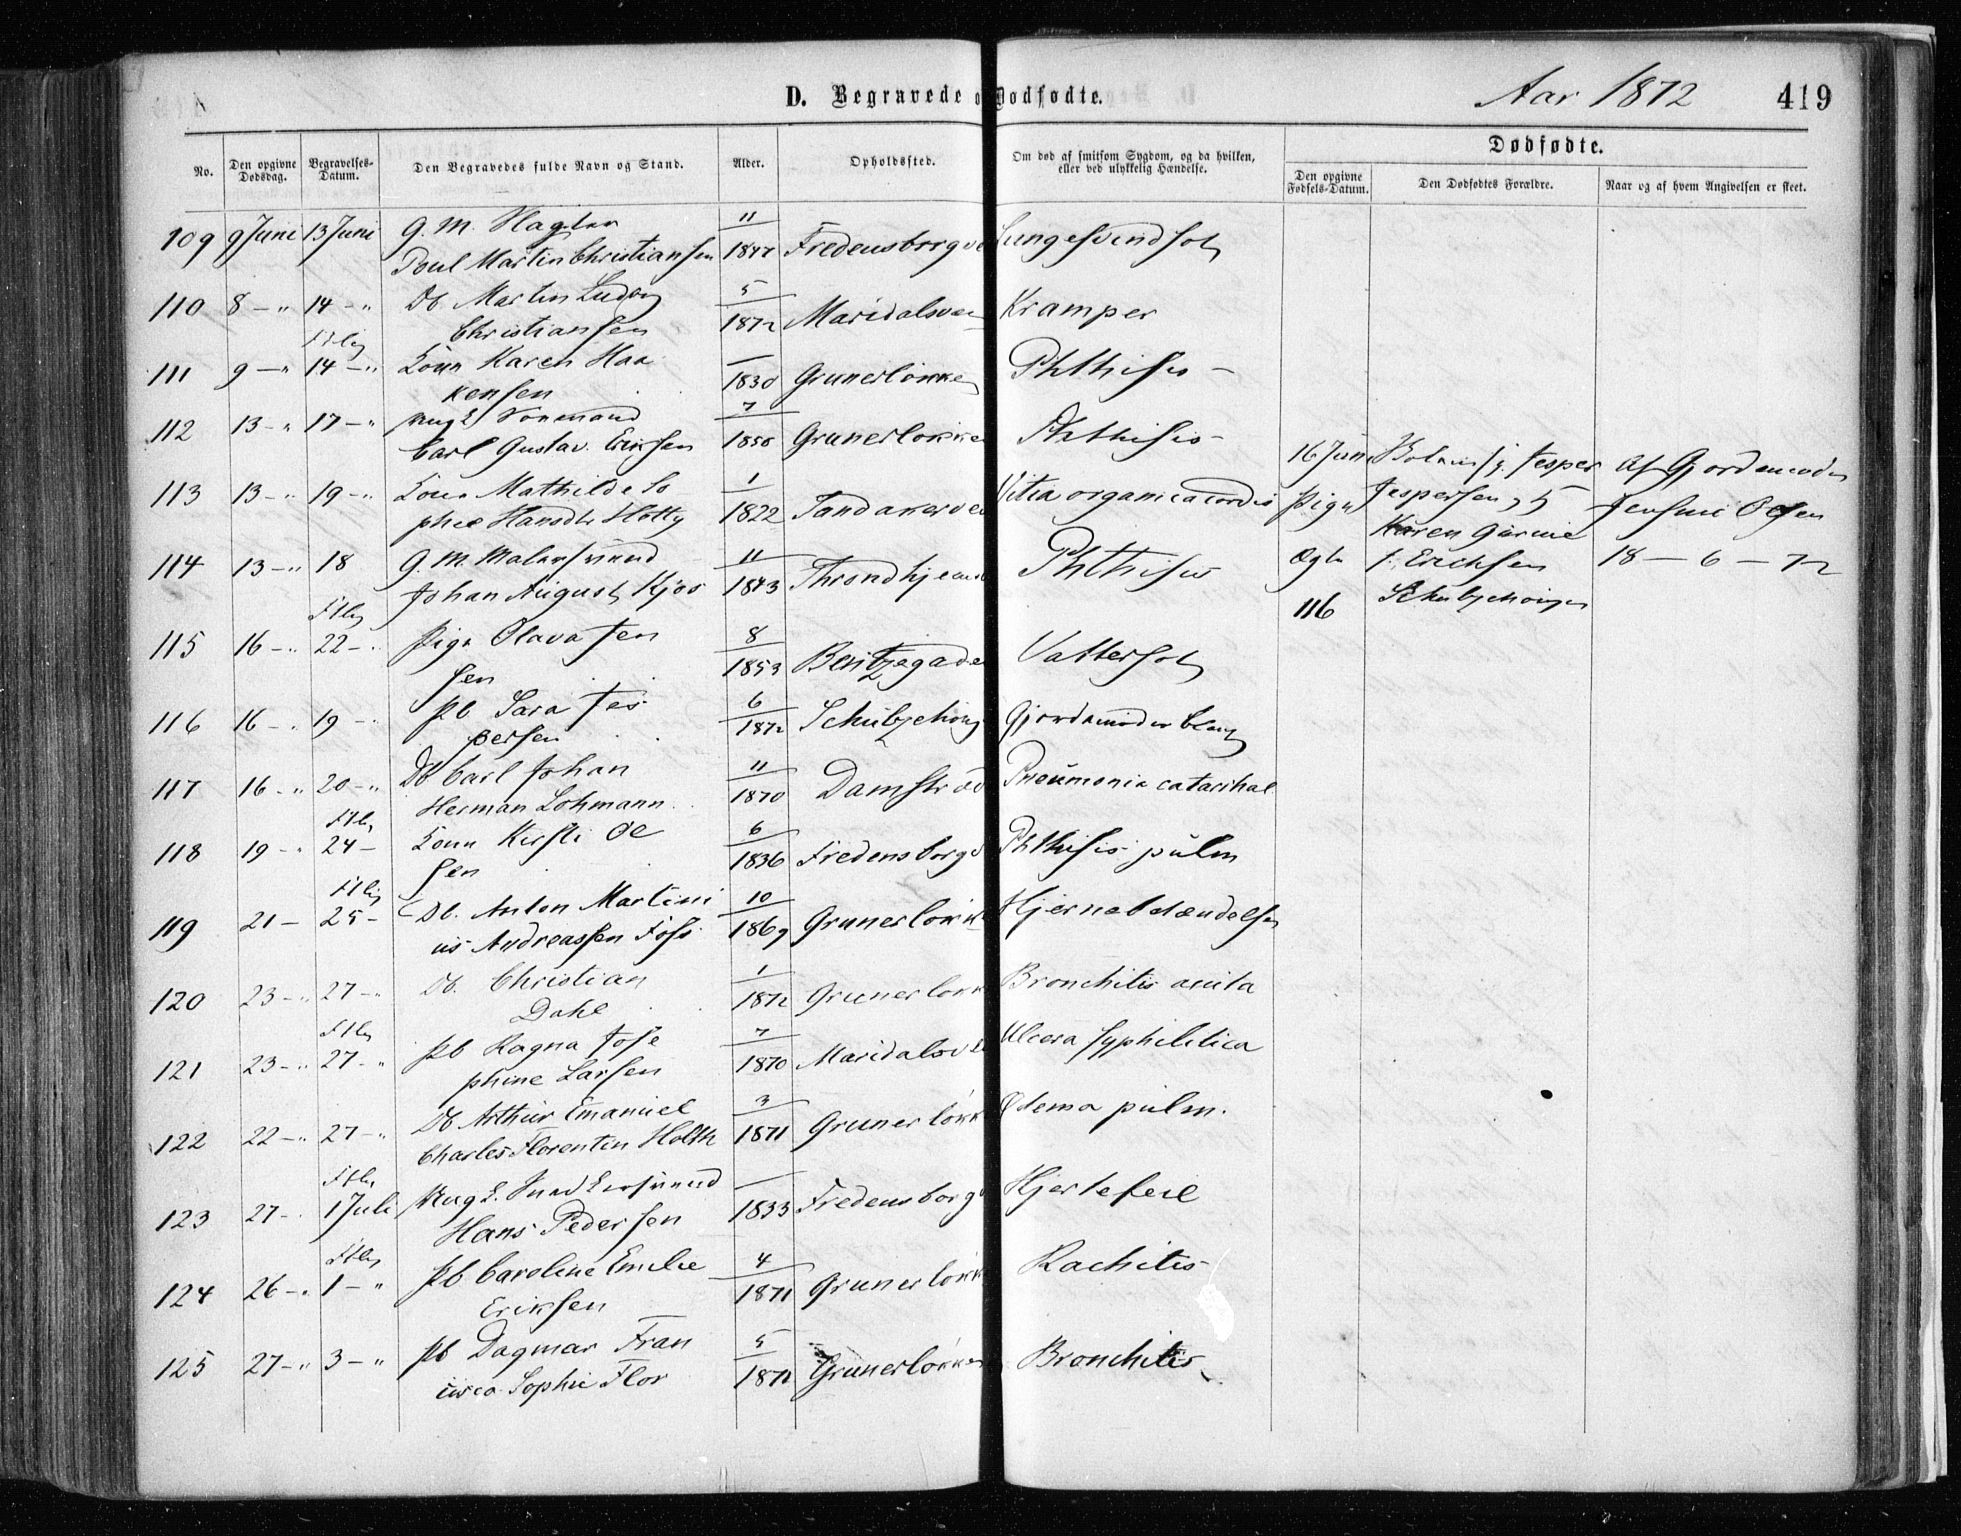 D. Begravede o Dødfødte. Aar 1872 419
No. Den opgivne Dødsdag. Begravelses-Datum. Den Begravedes fulde Navn og Stand. Alder. Opholdssted. Om død af smitsom Sygdom, og da hvilken, eller ved ulykkelig Hændelse. Dødfødte.
Den opgivne Fødsels-Datum. Den Dødfødtes Forældre. Naar og af hvem Angivelsen er skeet.
109 9 Juni 13 Juni G. M. 11
Poul Martin Christiansen 1847 Fredensborgve
110 8 - " 14 - " Db. Martin Ludvig 5
Christiansen 1872 Maridalsvei Kramper
111 9 - " 14 - " Kone Karen Haa
kensen 1830 Grunerløkken Phthisis -
112 13 - " 17 - " Ung 7
Carl Gustav Eriksen 1850 Grunerløkke Phthisis -
113 13 - " 19 - " Kone Mathilde So 1
phie Hansdtr 1822 Vitia organica cordis
114 13 - " 18 G. M. Malersvend 11
Johan August Kjos 1843 Throndhjemsv Phthisis
16 Juni Jesper Af Gjordemoder
Pige Jespersen og Olsen
Karen
Ægte f. Erichsen 18 - 6 - 72
116
115 16 - " 22 - " Pige Olava Jen 8
sen 1853 Bentzegade Vattersot
116 16 - " 19 - " Pb Sara Jes 6
persen 1872 Gjordemoder
117 16 - " 20 - " Db Carl Johan 11
Herman Lohmann 1870 Damstræd Pneumonia catarrhal
118 19 - " 24 - Kone Kirsti Ol 6
sen 1836 Fredensborgv Phthisis pulm
119 21 - 25 - Db. Anton Martini 10
us Andreassen Foss 1869 Grunerløkke Hjernebetændelse
120 23 - " 27 - " Db. Christian 1
Dahl 1872 Grunerløkk Bronchitis acuta
121 23 - " 27 - " Pb Ragna Jose 7
phine Larsen 1870 Maridalsve Ulcera syphilitica
122 22 - " 27 - " Db Arthur Emanuel 3
Charles Florentin Holth 1871 Grunerløkk Ødema pulm.
123 27 - 1 Juli Ung
Hans Pedersen 1833 Fredensborgv Hjertefeil
124 26 - " 1 - " Pb Caroline Emilie 4
Eriksen 1871 Grunerløkk Rachitis
125 27 - " 3 - " Pb Dagmar Fran 5
cisca Sophie Flor 1871 Grunerløkken Bronchitis